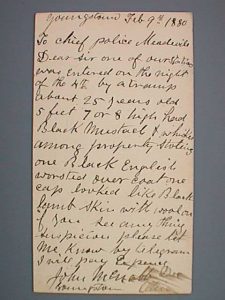 Youngstown Feb 9th 1880
To chief police Meadville
Dear sir one of our
was entered on the night
of the 4th by a tramp
about 25 years old
5 feet 7 or 8 high had
Black Mustach &
among property stolen
one Black English
worsted over coat one
cap looked like Black
Lamb Skin with
if you see any thing
suspicious please let
Me know by telegram
I will pay Expence
John
Youngstown Ohio